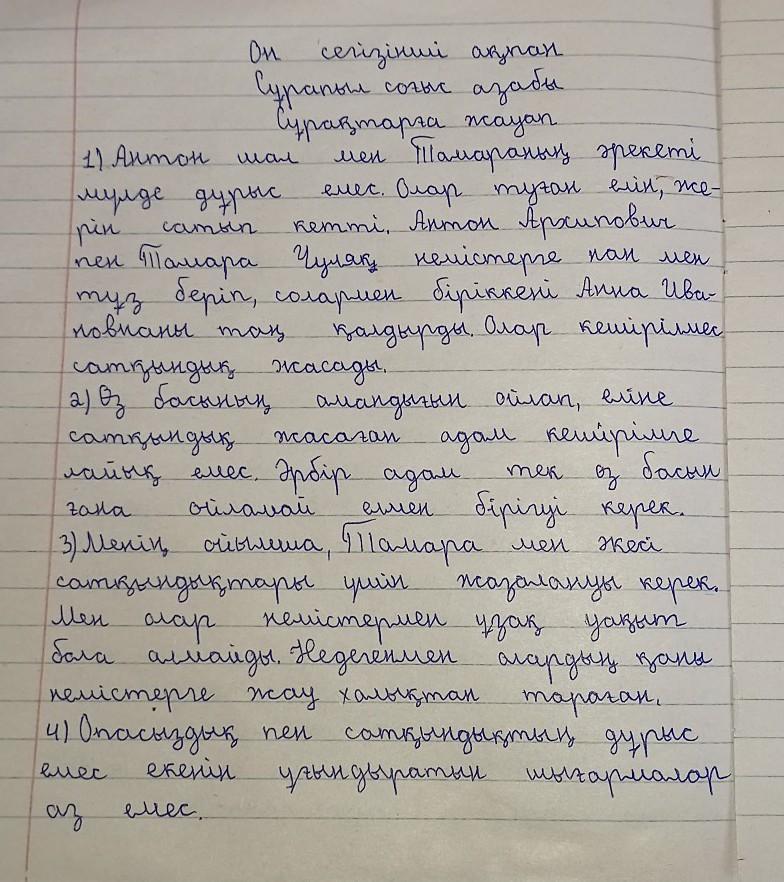 Он сегізінші ақпан
Сұрапыл соғыс азабы
Сұрақтарға жауап
1) Антон шал мен Тамараның әрекеті
мүлде дұрыс емес. Олар туған елін, же-
рін сатып кетті. Антон Архипович
пен Тамара Чуляқ немістерге нан мен
тұз беріп, солармен біріккені Анна Ива-
новнаны таң қалдырды. Олар кешірілмес
сатқындық жасады.
2) Өз басының амандығын ойлап, еліне
сатқындық жасаған адам кешірімге
лайық емес. Әрбір адам тек өз басын
ғана ойламай елмен бірігуі керек.
3) Менің ойымша, Тамара мен әкесі
сатқындықтары үшін жазалануы керек.
Мен олар немістермен ұзақ уақыт
бола алмайды. Недегенмен олардың қаны
немістерге жау халықтан тараған.
4) Опасыздық пен сатқындықтың дұрыс
емес екенін ұғындыратын шығармалар
аз емес.